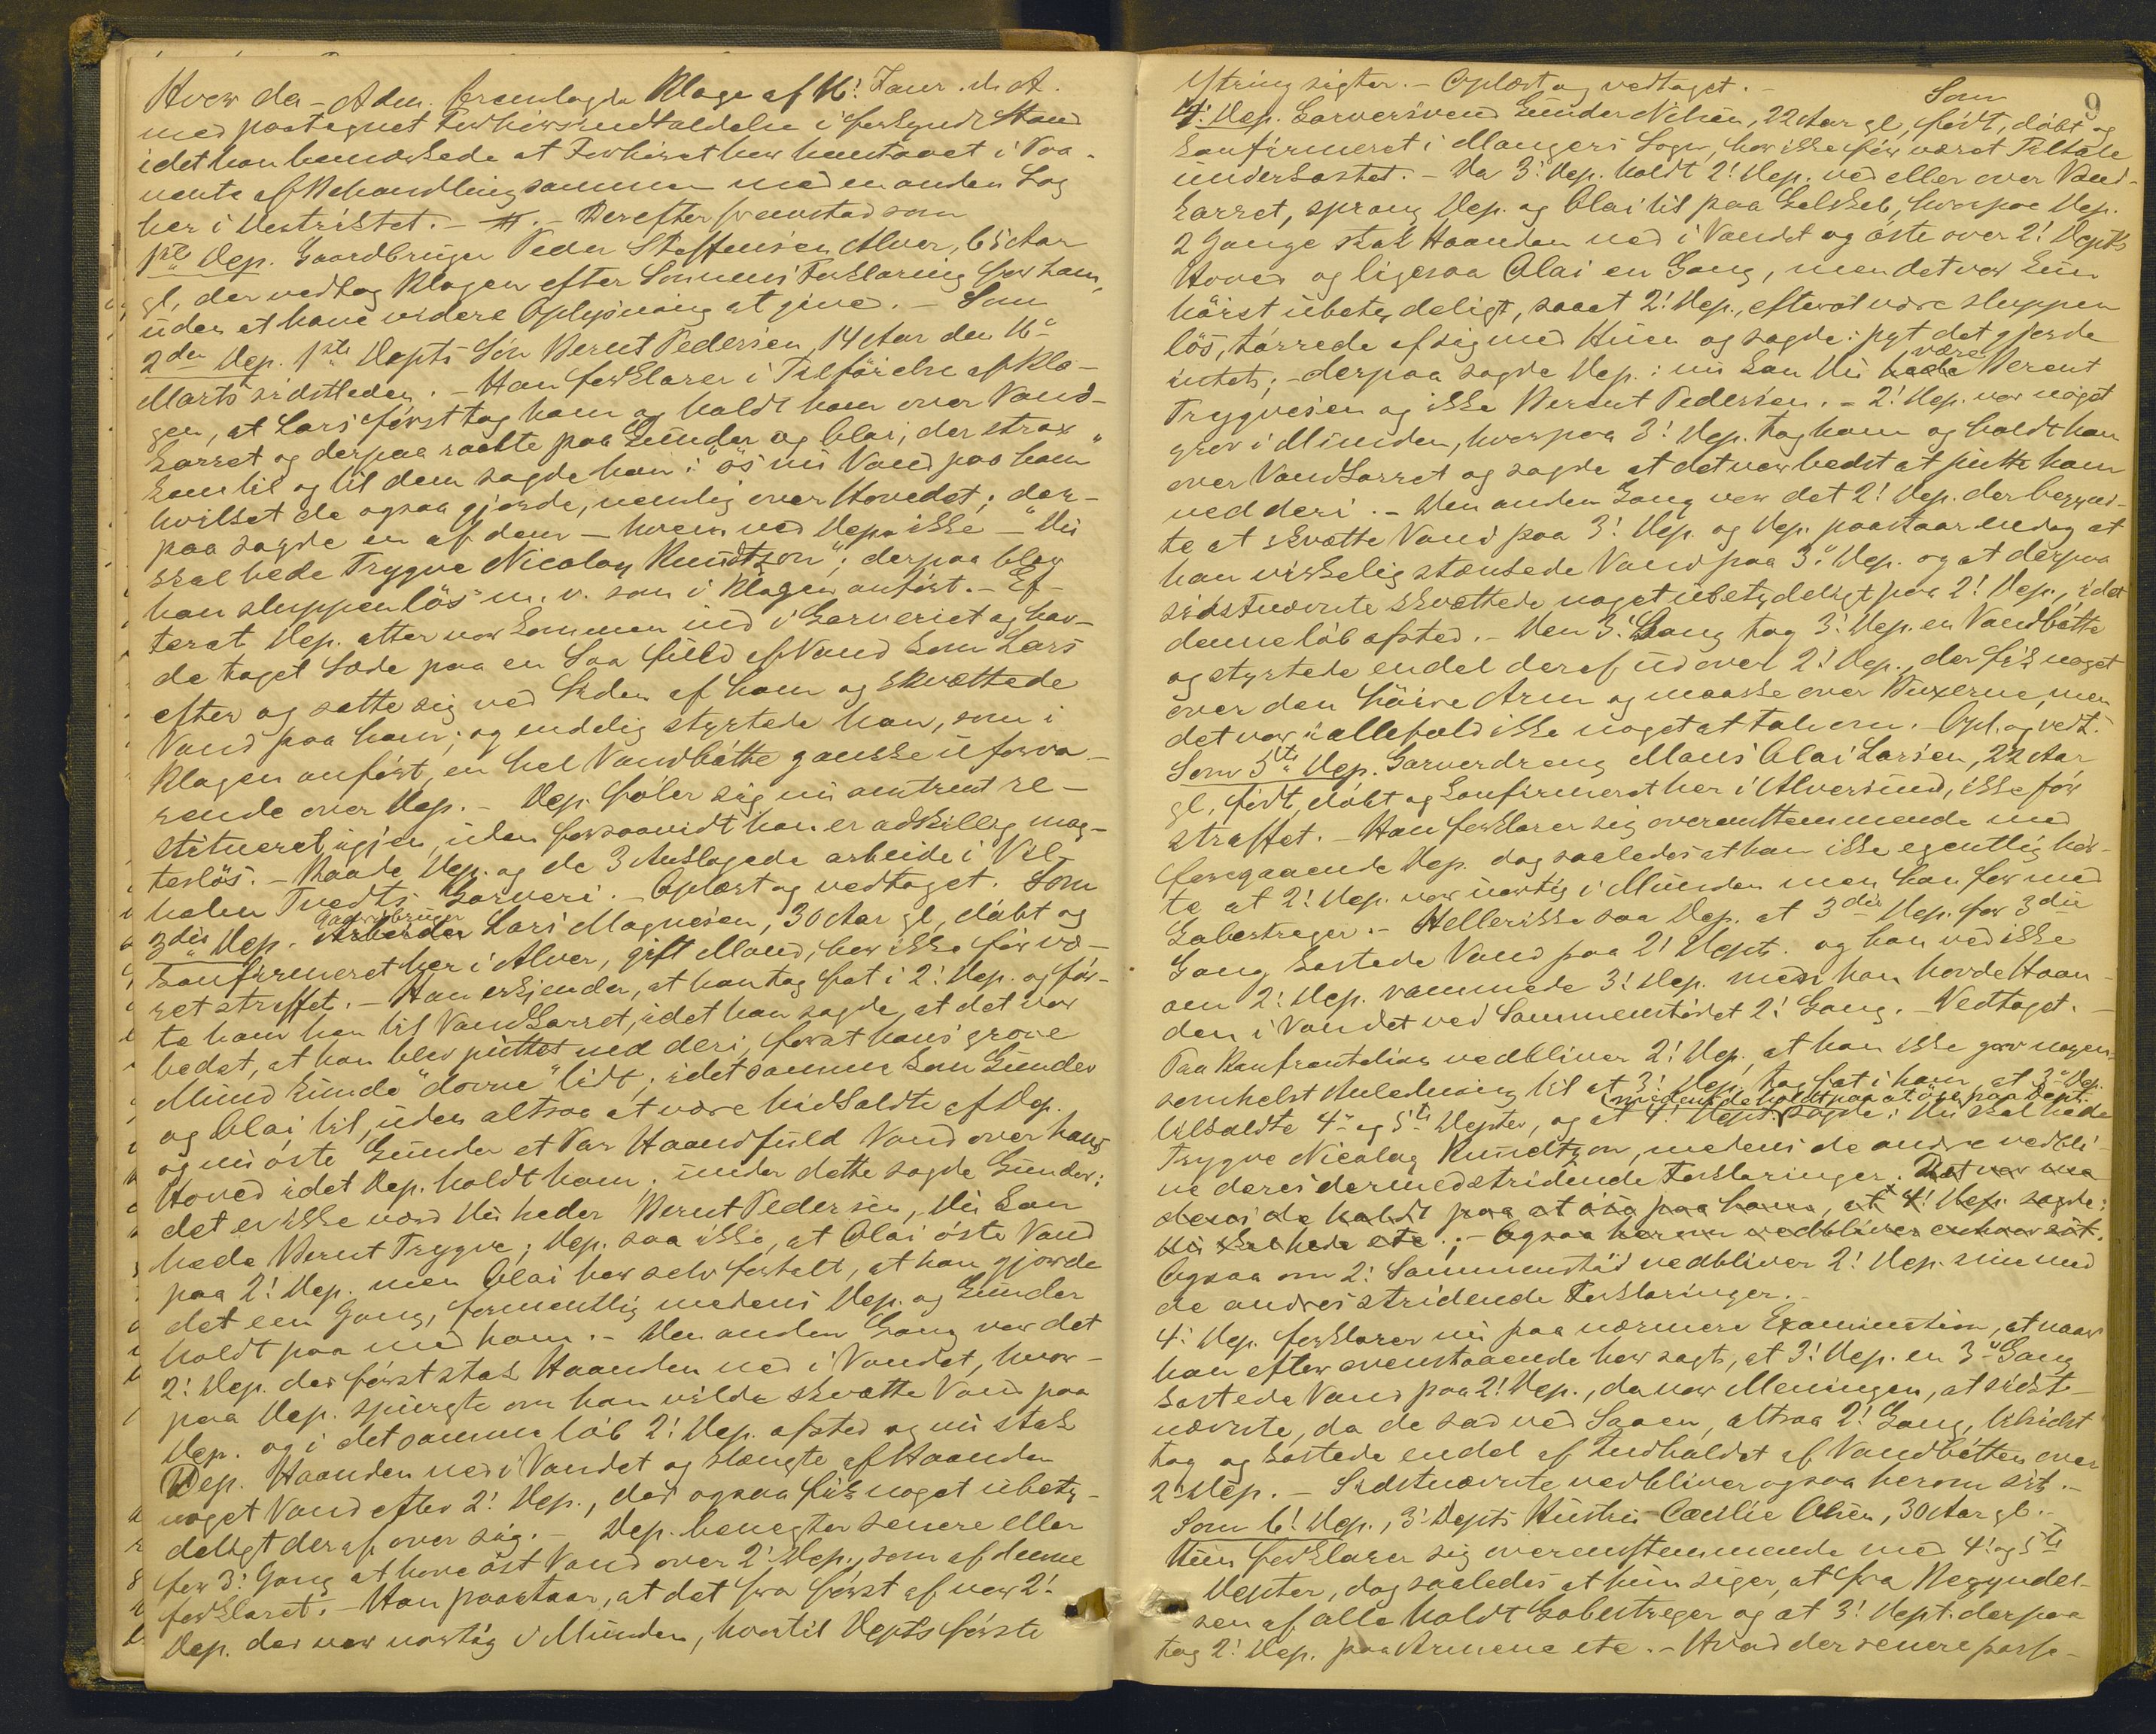 Hvor da – Adm. fremlagde Klage af 16! Janr. d. A.
med paategnet Forhørsindkaldelse i forkyndt Stand
idet han bemærkede at Forhøret her henstaaet i Paa-
vente af Behandling sammen med en anden Sag
her i Distriktet. – Derefter fremstod som
1ste Dep. Gaardbruger Peder Steffensen Alver, 65 Aar
gl, der vedtog Klagen efter Sønnens Forklaring for ham,
uden at have videre Oplysning at give. – Som
2den Dep. 1ste Depts Søn Bernt Pedersen, 14 Aar den 16de
Marts sidstleden. – Han forklarer i Tilførelse af Kla-
gen, at Lars først tog ham og holdt ham over Vand-
karret og derpaa raabte paa Gunder og Olai, der strax
kom til og til dem sagde han: "øs nu Vand paa ham"
hvilket de ogsaa gjorde, nemlig over Hovedet; der-
paa sagde en af dem – hvem ved Dep. ikke – "Du
skal hede Trygve Nicolay Knudtzon"; derpaa blev
han sluppen løs m. v. som i Klagen anført. – Ef-
terat Dep. atter var kommen ind i Garveriet og hav-
de taget Sæde paa en Saa fuld af Vand kom Lars
efter og satte sig ved Siden af ham og skvættede
Vand paa ham; og endelig styrtede han, som i
Klagen anført, en hel Vandbøtte ganske uforva-
rende over Dep. – Dep. føler sig nu omtrent re-
stitueret igjen, uden forsaavidt han er adskillig mag-
tesløs. – Baade Dep. og de 3 Anklagede arbeide i Vil-
helm Tvedts Garveri. – Oplæst og vedtaget. Som
3die Dep. Arbeider Gaardbruger Lars Magnesen, 30 Aar gl, døbt og
konfirmeret her i Alver, gift Mand, har ikke før væ-
ret straffet. – Han erkjender, at han tog fat i 2! Dep. og før-
te ham hen til Vandkarret, idet han sagde, at det var
bedst, at han blev puttet ned deri, forat hans grove
Mund kunde "dovne" lidt; idetsamme kom Gunder
og Olai til, uden altsaa at være tilkaldte af Dep.
og nu øste Gunder et Par Haandfuld Vand over hans
Hoved idet Dep. holdt ham; under dette sagde Gunder:
det er ikke værd Du heder Bernt Pedersen, Du kan
hede Bernt Trygve; Dep. saa ikke, at Olai øste Vand
paa 2! Dep. men Olai har selv fortalt, at han gjorde
det een Gang, formentlig medens Dep. og Gunder
holdt paa med ham. – Den anden Gang var det
2! Dep. der først stak Haanden ned i Vandet, hvor-
paa Dep. spurgte om han vilde skvætte Vand paa
Dep. og i detsamme løb 2! Dep. afsted og nu stak
Dep. Haanden ned i Vandet og slængte af Haanden
noget Vand efter 2! Dep., der ogsaa fik noget ubety-
deligt deraf over sig. – Dep. benegter senere eller
for 3! Gang at have øst Vand over 2! Dep., som af denne
forklaret. – Han paastaar, at det fra først af var 2!
Dep. der var uartig i Munden, hvortil Depts første
9
Ytring sigter. – Oplæst og vedtaget. – Som
4! Dep. Garversvend Gunder Nilsen, 22 Aar gl, født, døbt og
konfirmeret i Mangers Sogn, har ikke før været Tiltale
underkastet. – Da 3! Dep. holdt 2! Dep. ved eller over Vand-
karret, sprang Dep. og Olai til paa Gelskeb, hvorpaa Dep.
2 Gange stak Haanden ned i Vandet og øste over 2! Depts
Hoved og ligesaa Olai en Gang, men det var kun
høist ubetydeligt, saaat 2! Dep., efterat være sluppen
løs, tørrede af sig med Huen og sagde: pyt det gjorde
intet; – derpaa sagde Dep.: nu kan Du hede være Berent
Trygvesen og ikke Berent Pedersen. – 2! Dep. var noget
grov i Munden, hvorpaa 3! Dep. tog ham og holdt ham
over Vandkarret og sagde at det var bedst at putte ham
ned deri. – Den anden Gang var det 2! Dep. der begynd-
te at skvætte Vand paa 3! Dep. og Dep. paastaar endog at
han virkelig stænkede Vand paa 3! Dep. og at derpaa
sidstnævnte skvættede noget ubetydeligt paa 2! Dep., idet
denne løb afsted. – Den 3! Gang tog 3! Dep. en Vandbøtte
og styrtede endel deraf ud over 2! Dep., der fik noget
over den høire Arm og maaske over Buxerne, men
det var iallefald ikke noget at tale om. – Opl. og vedt.
Som 5te Dep. Garverdreng Mons Olai Larsen, 22 Aar
gl, født, døbt og konfirmeret her i Alversund, ikke før
straffet. – Han forklarer sig overensstemmende med
foregaaende Dep. dog saaledes at han ikke egentlig hør-
te at 2! Dep. var uartig i Munden men han for med
Gabestreger. – Heller ikke saa Dep. at 3die Dep. for 3die
Gang kastede Vand paa 2! Dept. og han ved ikke
om 2! Dep. rammede 3! Dep. med han havde Haan-
den i Vandet ved Sammenstødet 2! Gang. – Vedtaget. –
Paa Konfrontation vedbliver 2! Dep. at han ikke gav nogen-
somhelst Anledning til at 3! Dep. tog fat i ham, at 3! Dep.
medens de holdt paa at øse paa Dept.
tilkaldte 4de og 5te Depter, og at 4! Dept. sagde: Du skal hede
Trygve Nicolay Knudtzon, medens de andre vedbli-
ve deres dermed stridende Forklaringer. Det var me-
dens de holdt paa at øse paa ham, at 4! Dep. sagde:
Du skal hede etc.; – Ogsaa herom vedbliver enhver sit.
Ogsaa om 2! Sammenstød vedbliver 2! Dep. sin med
de andres stridende Forklaringer. –
4! Dep. forklarer nu paa nærmere Examination, at naar
han efter ovenstaaende har sagt, at 3! Dep. en 3! Gang
kastede Vand paa 2! Dep., da var Meningen, at sidst-
nævnte, da de sad ved Saaen, altsaa 2! Gang, tilsidst
tog og kastede endel af Indholdet af Vandbøtten over
2! Dep. – Sidstnævnte vedbliver ogsaa herom sit. –
Som 6! Dep., 3! Depts Hustru Cæcilie Olsen, 30 Aar gl. –
Hun forklarer sig overensstemmende med 4! og 5te
Depter, dog saaledes at hun siger, at fra Begyndel-
sen af alle holdt Gabestreger og at 3! Dept. derpaa
tog 2! Dep. paa Armene etc. – Hvad der senere passe-